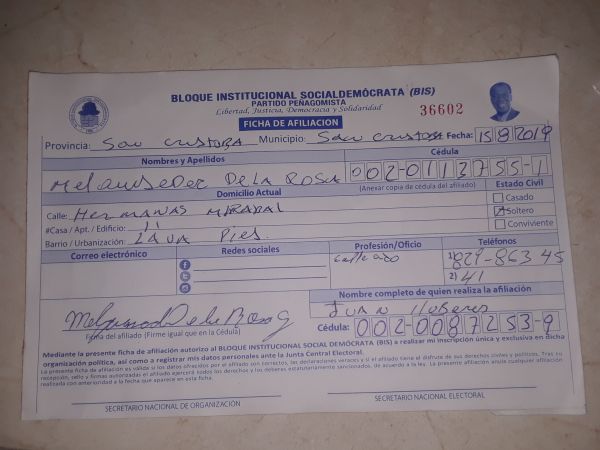 BLOQUE INSTITUCIONAL SOCIALDEMÓCRATA (BIS)
PARTIDO PEÑAGOMISTA
Libertad, Justicia, Democracia y Solidaridad
36602
FICHA DE AFILIACIÓN
Provincia: San Cristóbal Municipio: San Cristobal Fecha: 15/8/2019
Nombres y Apellidos Cédula
DE LA ROSA 002-0113755-1
Domicilio Actual (Anexar copia de cédula del afiliado) Estado Civil
Calle: Hermanas Mirabal Casado
#Casa / Apt. / Edificio: 11 Soltero
Barrio / Urbanización: LAVA Pies. Conviviente
Correo electrónico Redes sociales Profesión/Oficio Teléfonos
1) 829-863 45
2) 41
Nombre completo de quien realiza la afiliación
Juan
Firma del afiliado (Firme igual que en la Cédula) Cédula: 002-0087253-9
Mediante la presente ficha de afiliación autorizo al BLOQUE INSTITUCIONAL SOCIAL DEMÓCRATA (BIS) a realizar mi inscripción única y exclusiva en dicha
organización política, así como a registrar mis datos personales ante la Junta Central Electoral.
La presente ficha de afiliación es válida si los datos ofrecidos por el afiliado son correctos, las declaraciones veraces y si el titular tiene el disfrute de sus derechos civiles y políticos. Tras su
recepción, sello y firmas autorizadas el afiliado ejercerá todos los derechos y los deberes estatutariamente sancionados, de acuerdo a la ley. La presente afiliación anula cualquier afiliación
realizada con anterioridad a la fecha que aparece en esta ficha.
SECRETARIO NACIONAL DE ORGANIZACIÓN SECRETARIO NACIONAL ELECTORAL